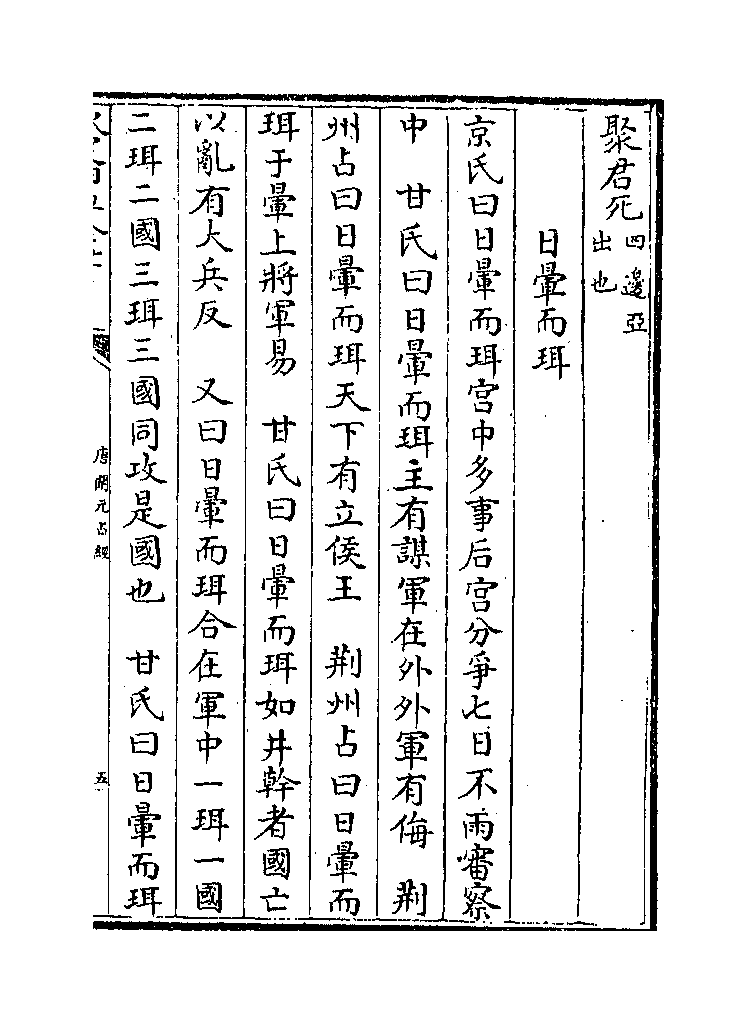 聚君死四邊亞
出也
日暈而珥
京氏曰日暈而珥宫中多事后宫分爭七日不雨審察
中　甘氏曰日暈而珥主有謀軍在外外軍有侮　荆
州占曰日暈而珥天下有立侯王　荆州占曰日暈而
珥于暈上將軍易　甘氏曰日暈而珥如井幹者國亡
以亂有大兵反　又曰日暈而珥合在軍中一珥一國
二珥二國三珥三國同攻是國也　甘氏曰日暈而珥
唐開元占經
五